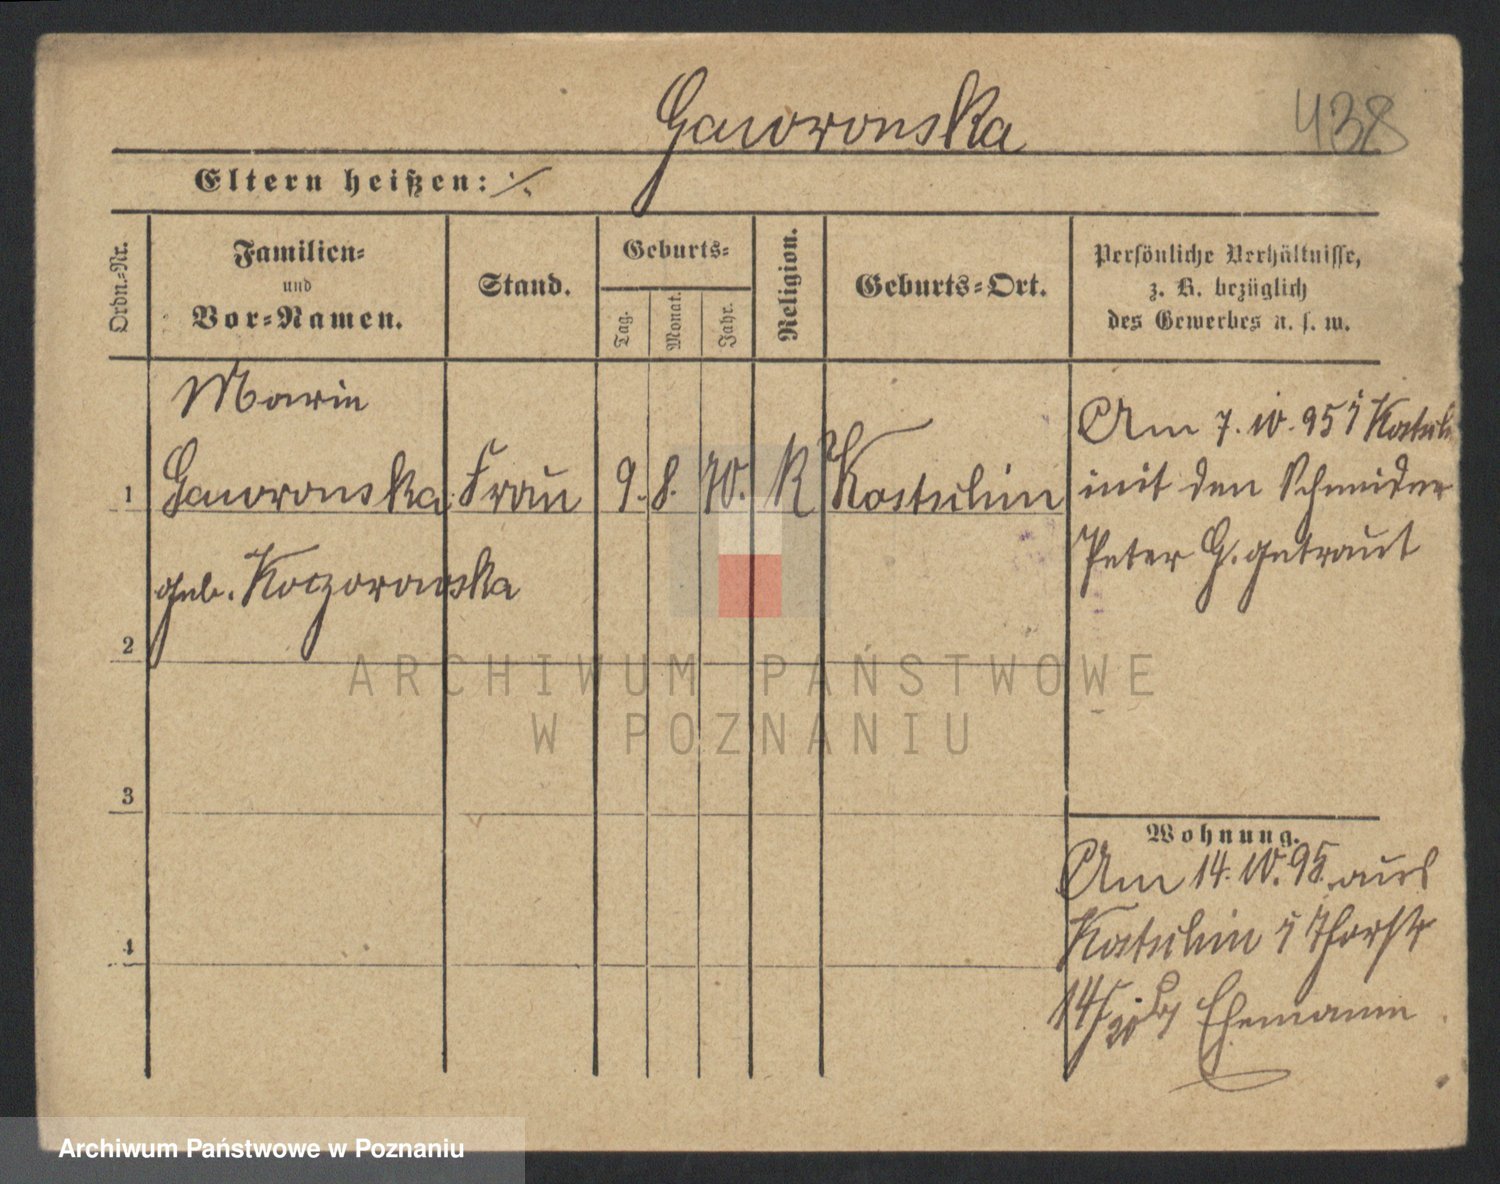 Gaworonska
438
Eltern heißen: ./.
Ordn.=Nr.
Familien=
und
Vor=Namen.
Stand.
Geburts=
Tag.
Monat.
Jahr.
Religion.
Geburts=Ort.
Persönliche Verhältnisse,
z. B. bezüglich
des Gewerbes u. s. w.
Marie
1 Gaworonska Frau 9. 8. 70. K Kostschin
geb. Koczorowska
Am 7. 10. 95 i Kostsch
mit dem Schneider
Peter G. getraut
2
3
4
Wohnung.
Am 14. 10. 95. aus
Kostschin i
14/ 20 Ehemann
ARCHIWUM PAŃSTWOWE
W POZNANIU
Archiwum Państwowe w Poznaniu